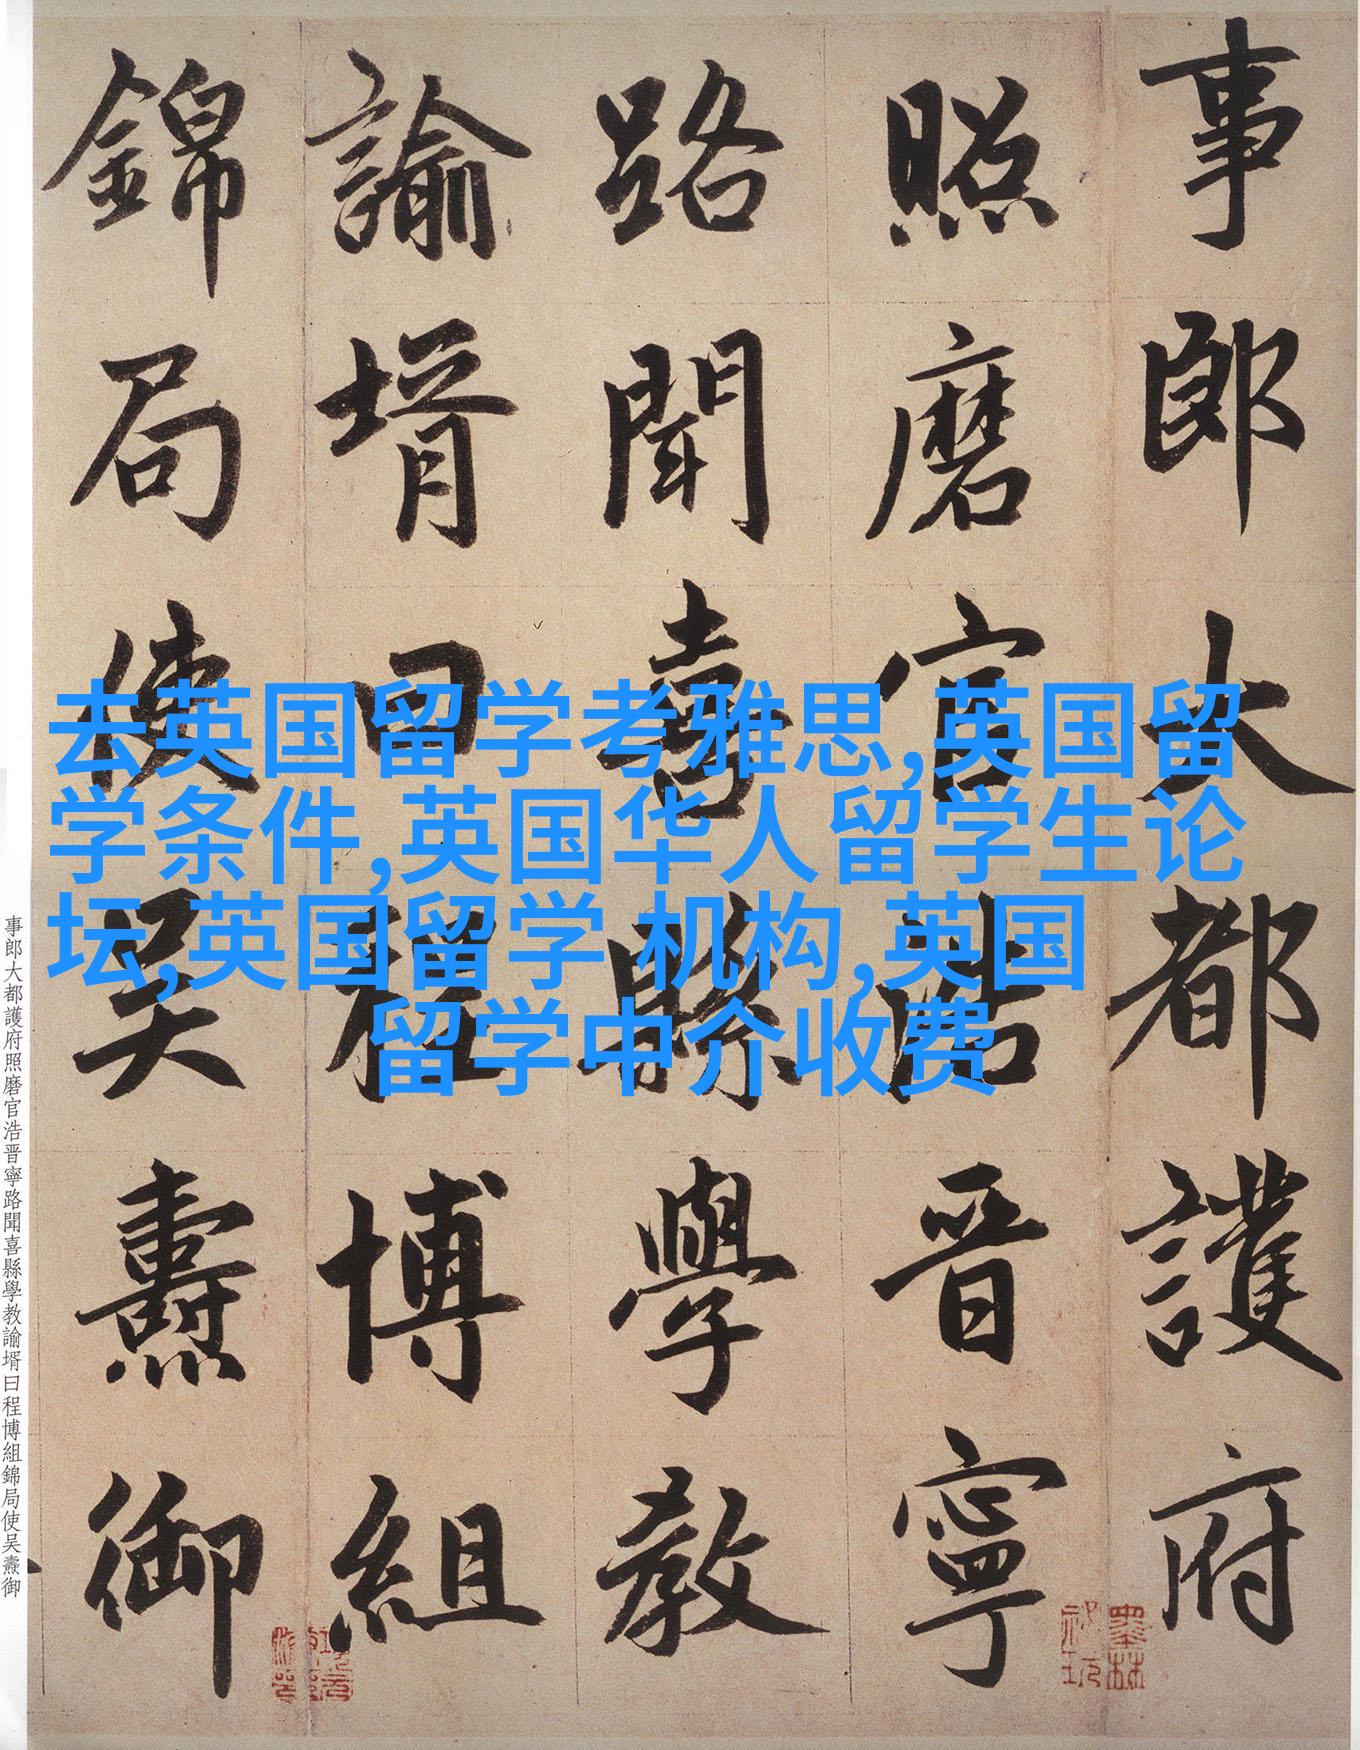 事郎大都護府
照磨官浩晋寧
路聞喜縣學教
諭壻曰程博組
錦局使吴燾御
去英国留学考雅思,英国留
学条件,英国华人留学生论
坛,英国留学 机构,英国
留学中介收费
事郎大都護府照磨官浩晋寧路聞喜縣學教諭壻曰程博組錦局使吴燾御
墨林
祕玩